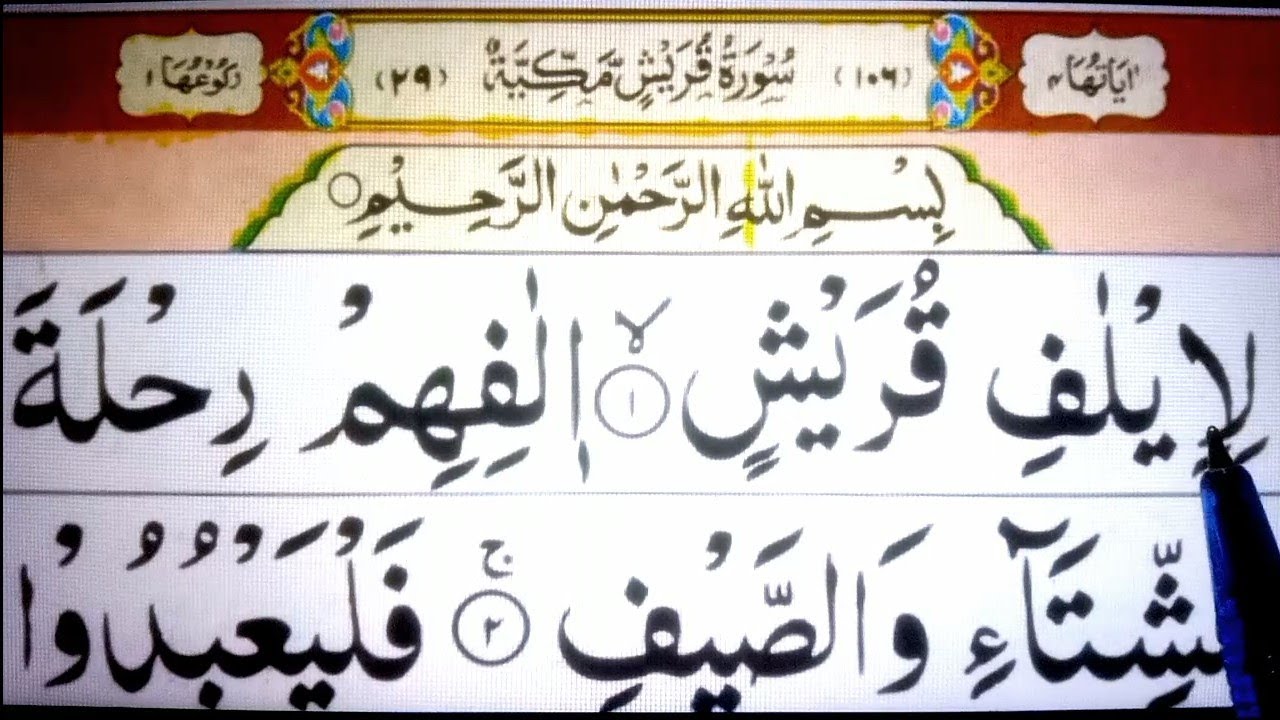 اٰیَاتُهَا ٤ (١٠٦) سُوْرَةُ قُرَيْشٍ مَّكِّيَّةٌ (٢٩) رُكُوْعُهَا ١
بِسْمِ اللّٰهِ الرَّحْمٰنِ الرَّحِيْمِ ○
لِاِيْلٰفِ قُرَيْشٍ ۙ ١ اٖلٰفِهِمْ رِحْلَةَ
الشِّتَآءِ وَالصَّيْفِ ۚ ٢ فَلْيَعْبُدُوْا